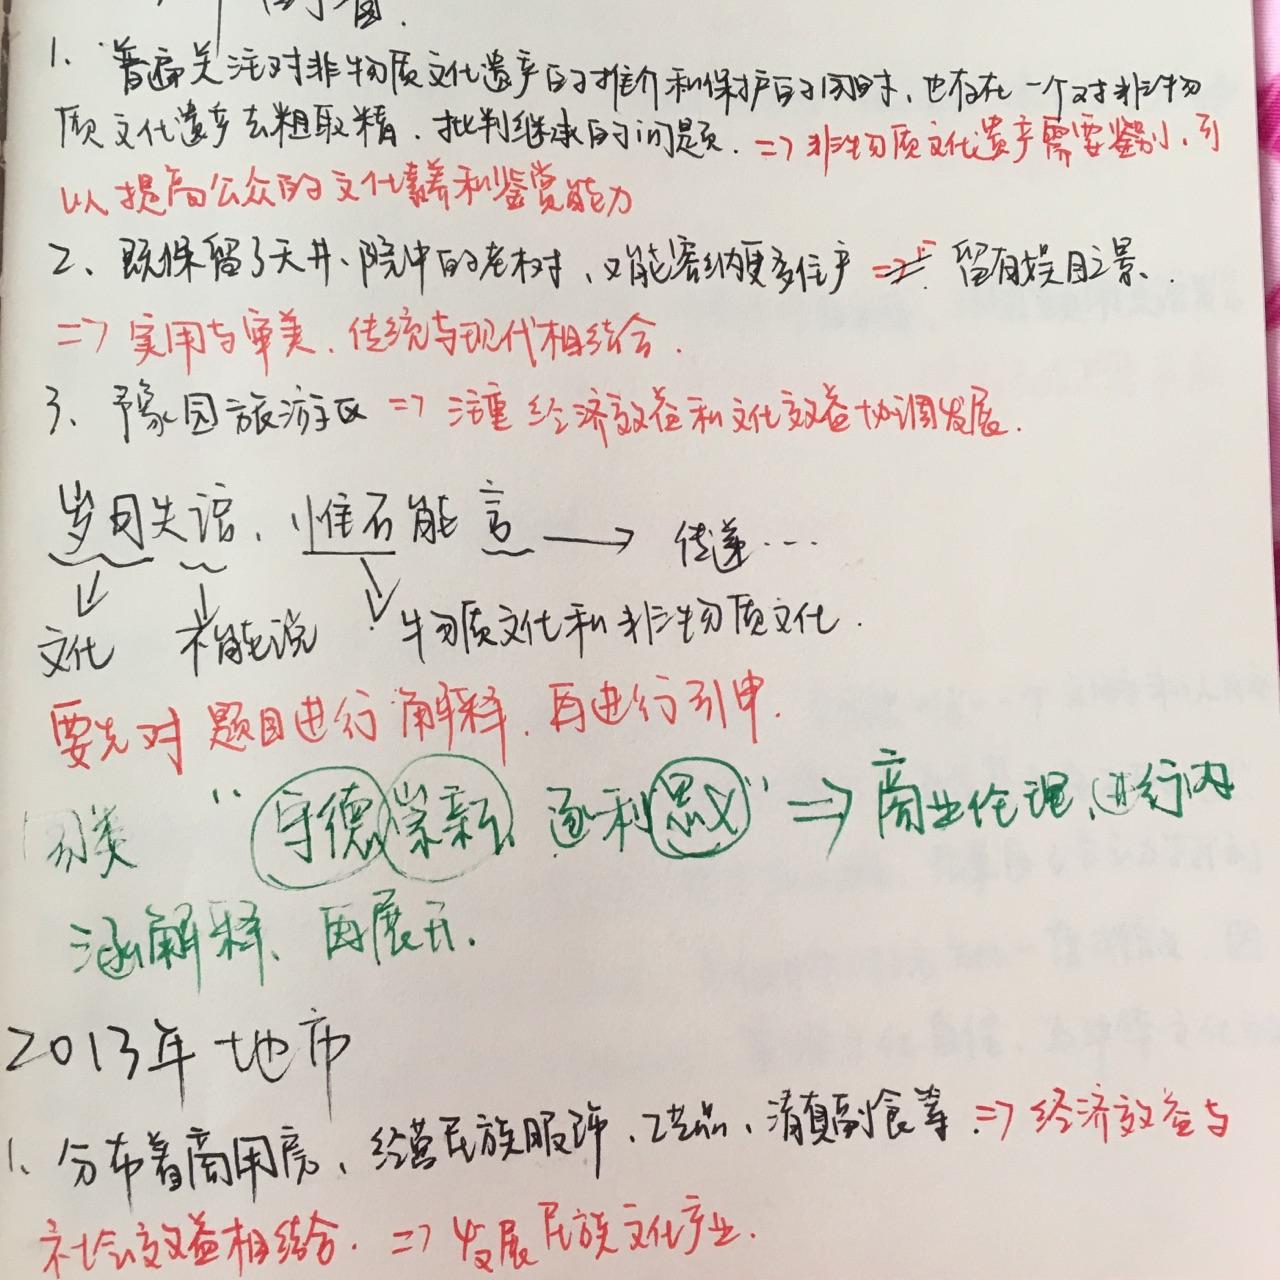 1. 普遍关注对非物质文化遗产的推介和保护的同时、也存在一个对非物
质文化遗产去粗取精、批判继承的问题. => 非物质文化遗产需要鉴别、引
以提高公众的文化素养和鉴赏能力
2、既保留了天井、院中的老树、又能容纳更多住户 留有娱目之景、
=> 实用与审美、传统与现代相结合.
3、豫园旅游区 => 注重经济效益和文化效益协调发展.
岁月失语、惟石能言 → 传递…
文化 不能说 物质文化和非物质文化.
要先对题目进行解释、再进行引申.
同类 "守德崇新、逐利思义" => 商业伦理、进行内
涵解释、再展开.
2013年地市
1、分布着商用房、经营民族服饰、工艺品、清真副食等. => 经济效益与
社会效益相结合. => 发展民族文化产业.